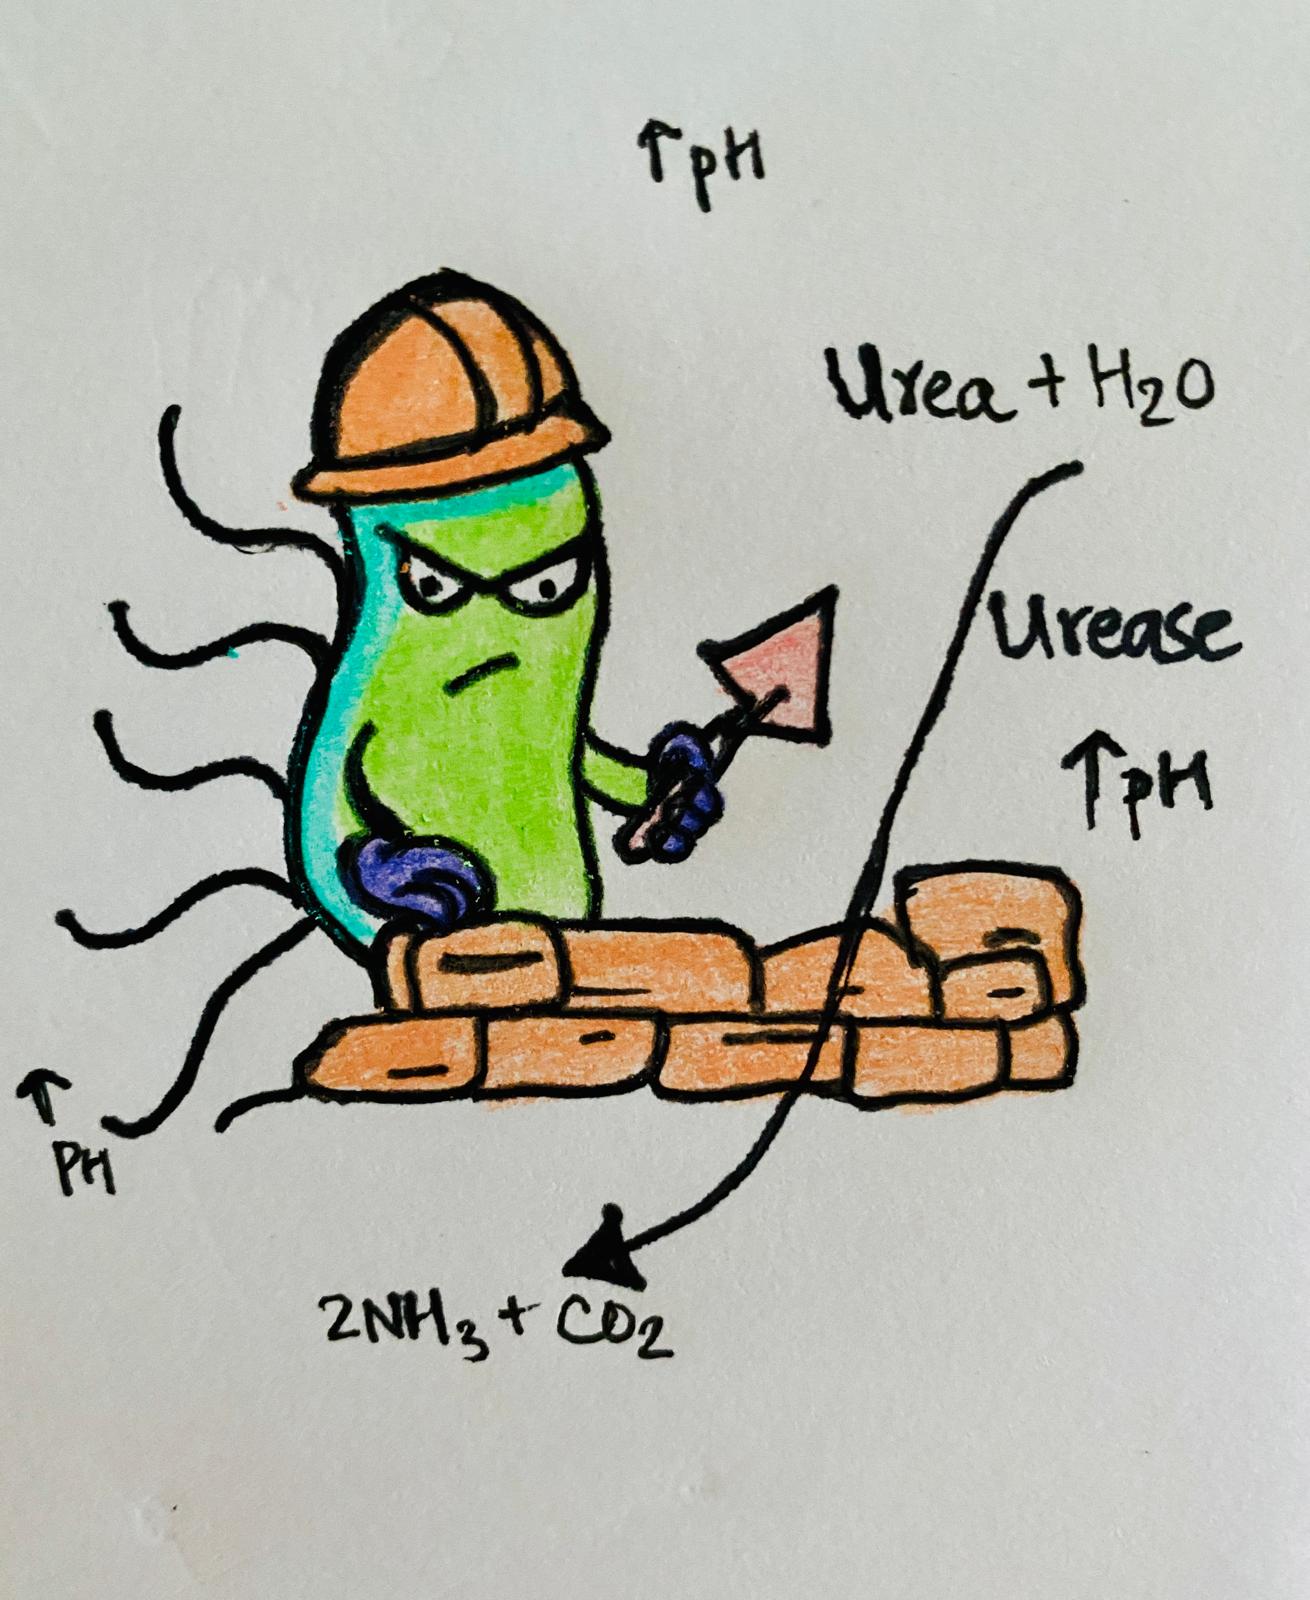 ↑pH
Urea + H2O
Urease
↑pH
↑
PH
2NH3 + CO2